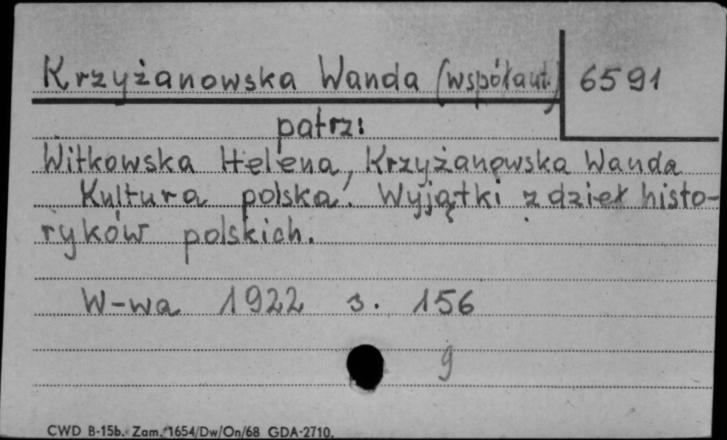 Krzyżanowska Wanda (współaut.) 6591
patrz:
Witkowska Helena, Krzyżanowska Wanda
Kultura polska. Wyjątki z dzieł histo-
ryków polskich.
W-wa 1922 s. 156
9
CWD B-15b. Zam. 1654/Dw/On/68 GDA-2710.